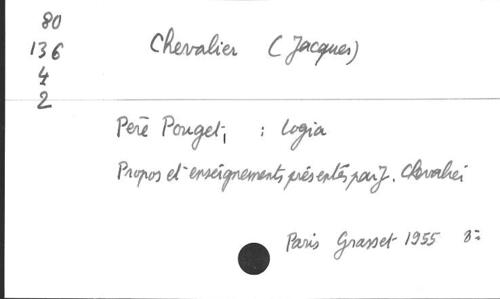 80
136
4
2
Chevalier (Jacques)
Père Pouget, : Logia
Propos et enseignements présentés par J. Chevalier
Paris Grasset 1955 8°